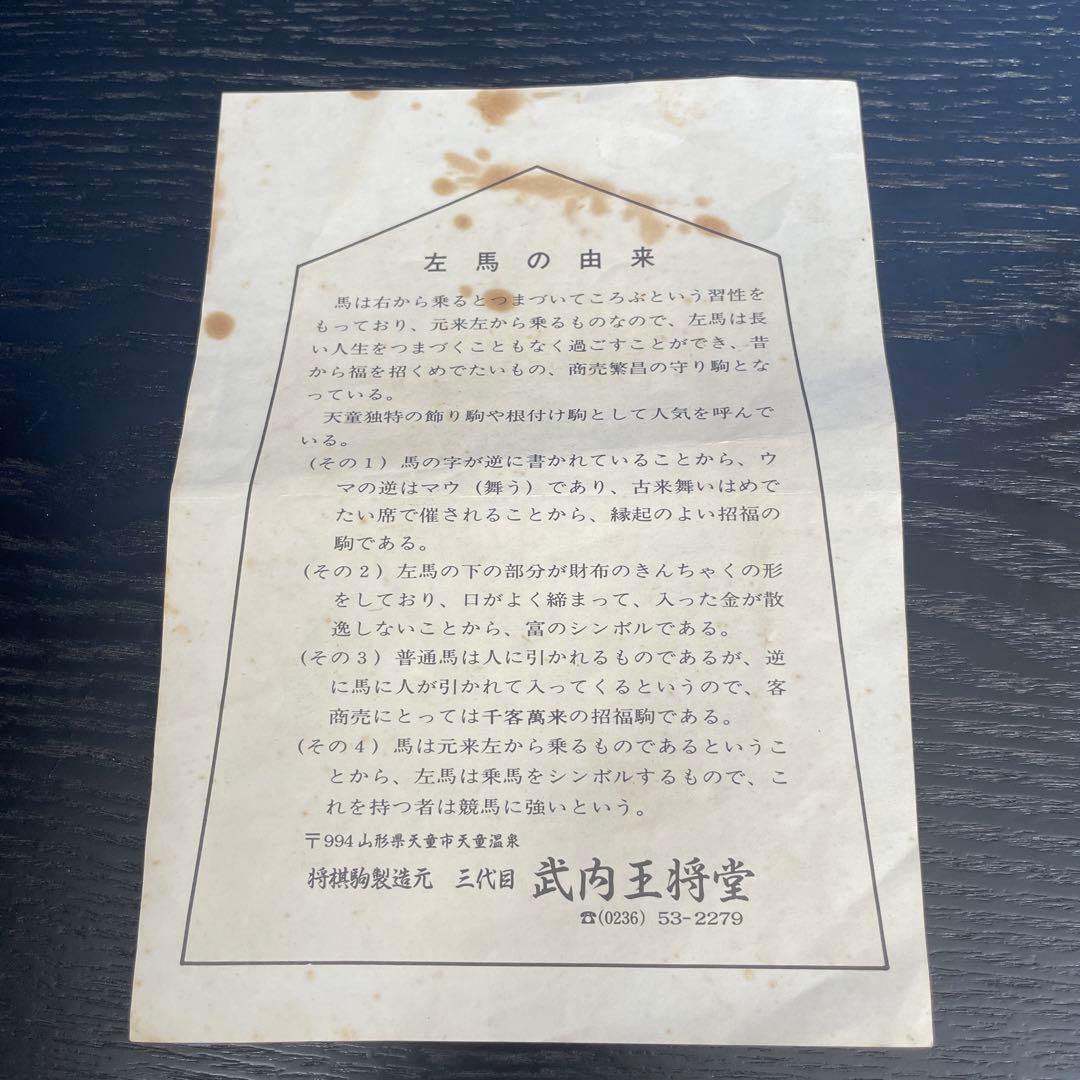 左馬の由来
馬は右から乗るとつまづいてころぶという習性を
もっており、元来左から乗るものなので、左馬は長
い人生をつまづくこともなく過ごすことができ、昔
から福を招くめでたいもの、商売繁昌の守り駒とな
っている。
天童独特の飾り駒や根付け駒として人気を呼んで
いる。
(その1) 馬の字が逆に書かれていることから、ウ
マの逆はマウ(舞う)であり、古来舞いはめで
たい席で催されることから、縁起のよい招福の
駒である。
(その2) 左馬の下の部分が財布のきんちゃくの形
をしており、口がよく締まって、入った金が散
逸しないことから、富のシンボルである。
(その3) 普通馬は人に引かれるものであるが、逆
に馬に人が引かれて入ってくるというので、客
商売にとっては千客萬来の招福駒である。
(その4) 馬は元来左から乗るものであるというこ
とから、左馬は乗馬をシンボルするもので、こ
れを持つ者は競馬に強いという。
〒994 山形県天童市天童温泉
将棋駒製造元 三代目 武内王将堂
☎(0236) 53-2279